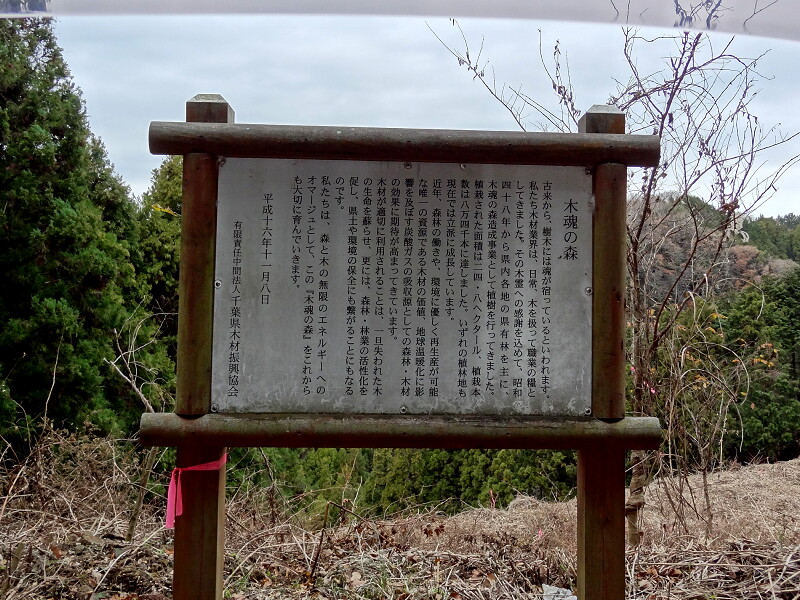 木魂の森
古来から、樹木には魂が宿っているといわれます。
私たち木材業界は、日常、木を扱って職業の糧と
してきました。その木霊への感謝を込めて、昭和
四十八年から県内各地の県有林を主に、
木魂の森造成事業として植樹を行ってきました。
植栽された面積は二四・八ヘクタール、植栽本
数は八万四千本に達しました。いずれの植林地も
現在では立派に成長しています。
近年、森林の働きや、環境に優しく再生産が可能
な唯一の資源である木材の価値、地球温暖化に影
響を及ぼす炭酸ガスの吸収源としての森林・木材
の効果に期待が高まってきています。
木材が適切に利用されることは、一旦失われた木
の生命を蘇らせ、更には、森林・林業の活性化を
促し、県土や環境の保全にも繋がることにもなる
のです。
私たちは、森と木の無限のエネルギーへの
オマージュとして、この『木魂の森』をこれから
も大切に育んでいきます。
平成十六年十一月八日
有限責任中間法人千葉県木材振興協会